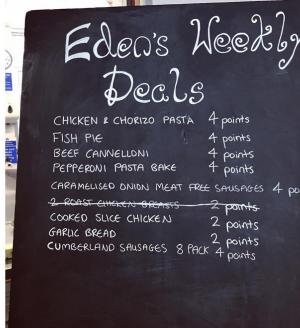 Eden's Weekly
Deals
CHICKEN & CHORIZO PASTA 4 points
FISH PIE 4 points
BEEF CANNELLONI 4 points
PEPPERONI PASTA BAKE 4 points
CARAMELISED ONION MEAT FREE SAUSAGES 4 po
2 ROAST CHICKEN BREASTS 2 points
COOKED SLICE CHICKEN 2 points
GARLIC BREAD 2 points
CUMBERLAND SAUSAGES 8 PACK 4 points